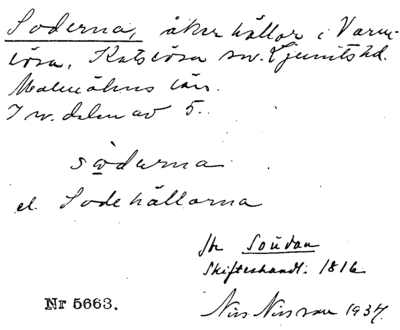 Soderna, åker hällor i Varm-
lösa, Katslösa sn. Ljunits hd.
Malmöhus län.
I w. delen av 5.
söderna
el. Sodehällorna
Jfr Soudan
Skifteshandl. 1816
Nr 5663.
Nils Nilsson 1937.